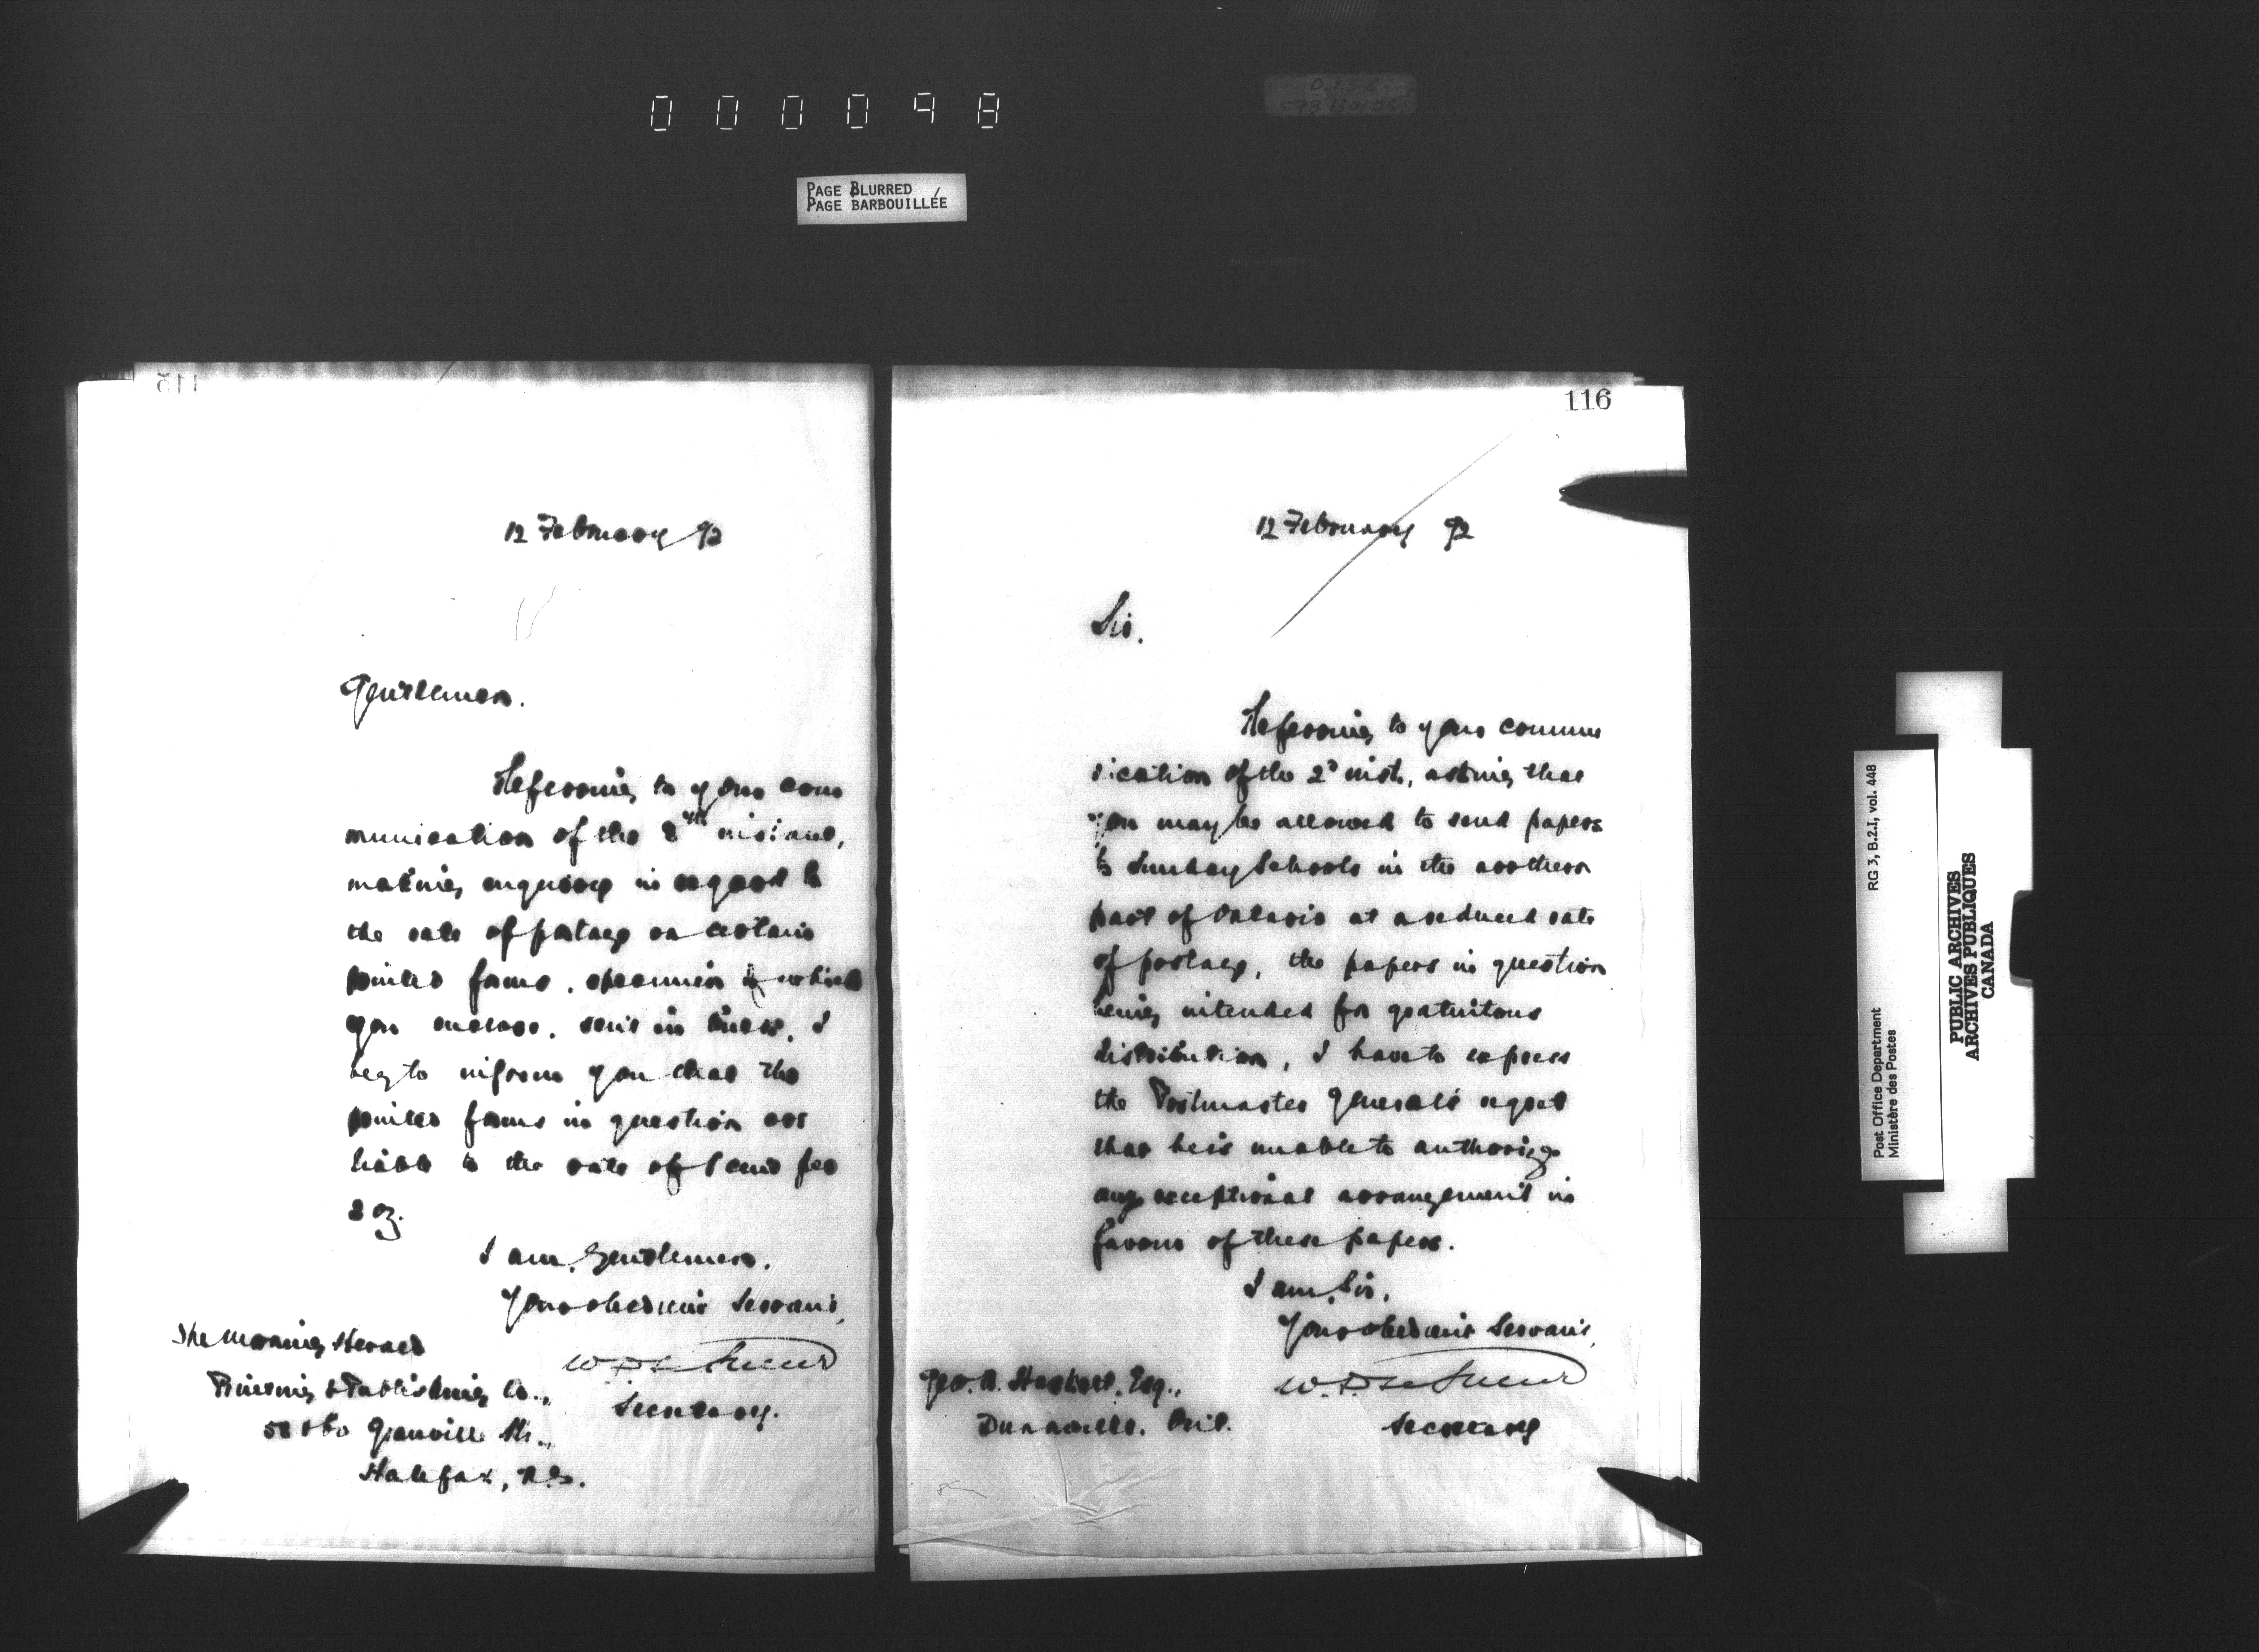 000098
PAGE BLURRED
PAGE BARBOUILLÉE
115
12 February 92
Gentlemen.
Referring to your com
munication of the 8th instant,
making enquiry in regard to
the rate of postage on certain
printed forms, specimen of which
you enclose, sent in lines, I
beg to inform you that the
printed forms in question are
liable to the rate of 1 cent per
2 oz.
I am, Gentlemen,
Your obedient Servant,
W. D. LeSueur
Secretary.
The Morning Herald
Printing & Publishing Co.,
58 & 60 Granville St.,
Halifax, N.S.
116
12 February 92
Sir.
Referring to your commu
nication of the 2d inst., asking that
you may be allowed to send papers
to Sunday Schools in the northern
part of Ontario at a reduced rate
of postage, the papers in question
being intended for gratuitous
distribution, I have to express
the Postmaster General's regret
that he is unable to authorize
any exceptional arrangement in
favour of these papers.
I am, Sir,
Your obedient Servant,
W. D. LeSueur
Secretary
Geo. A. Haskell, Esq.,
Dunnville, Ont.
RG 3, B.2.I, vol. 448
Post Office Department
Ministère des Postes
PUBLIC ARCHIVES
ARCHIVES PUBLIQUES
CANADA